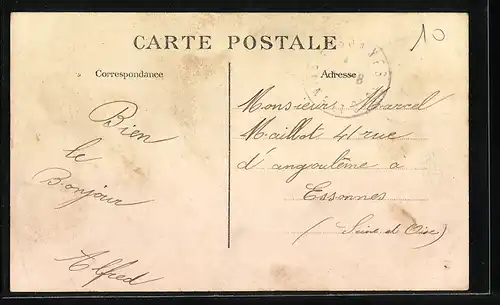 CARTE POSTALE
10
Correspondance
Adresse
Bien
le
Bonjour
Alfred
Monsieur Marcel
Maillot 41 rue
d'angoulême a
Essonnes
(Seine et Oise)